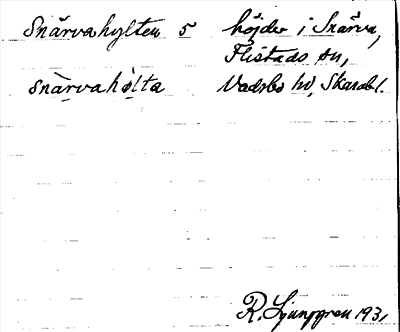 Snärvahylten 5 höjder i Snärva,
Flistads sn,
snä̀rvahỳlta Vadsbo hd, Skarab l.
R. Ljunggren 1931